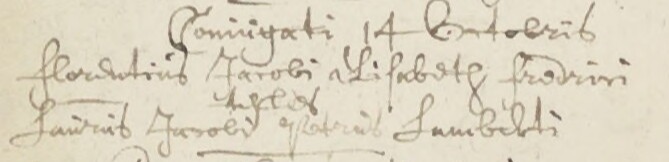 Coniugati 14 Octobris
Florentius Jacobi Elisabeth Fredrici
testes
Laurus Jacobi Petrus Lamberti